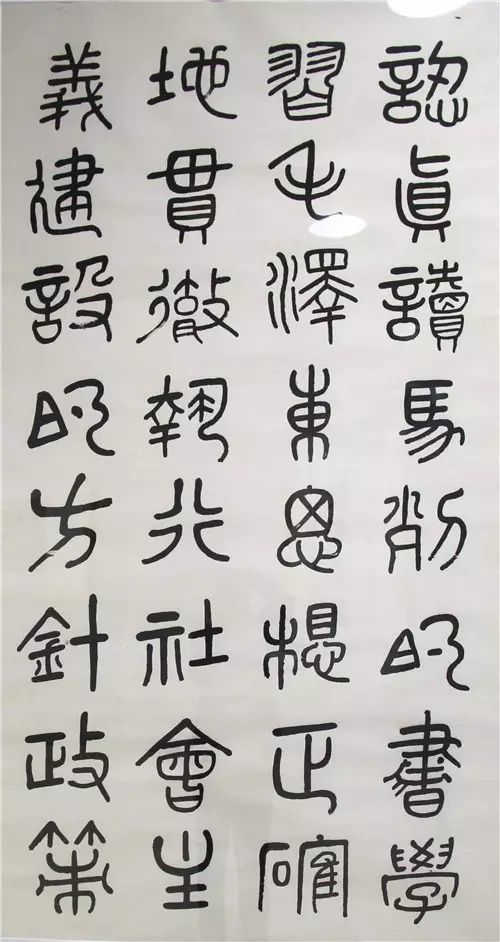 認眞讀馬列的書學
習毛澤東思想正確
地貫徹執行社會主
義建設的方針政策